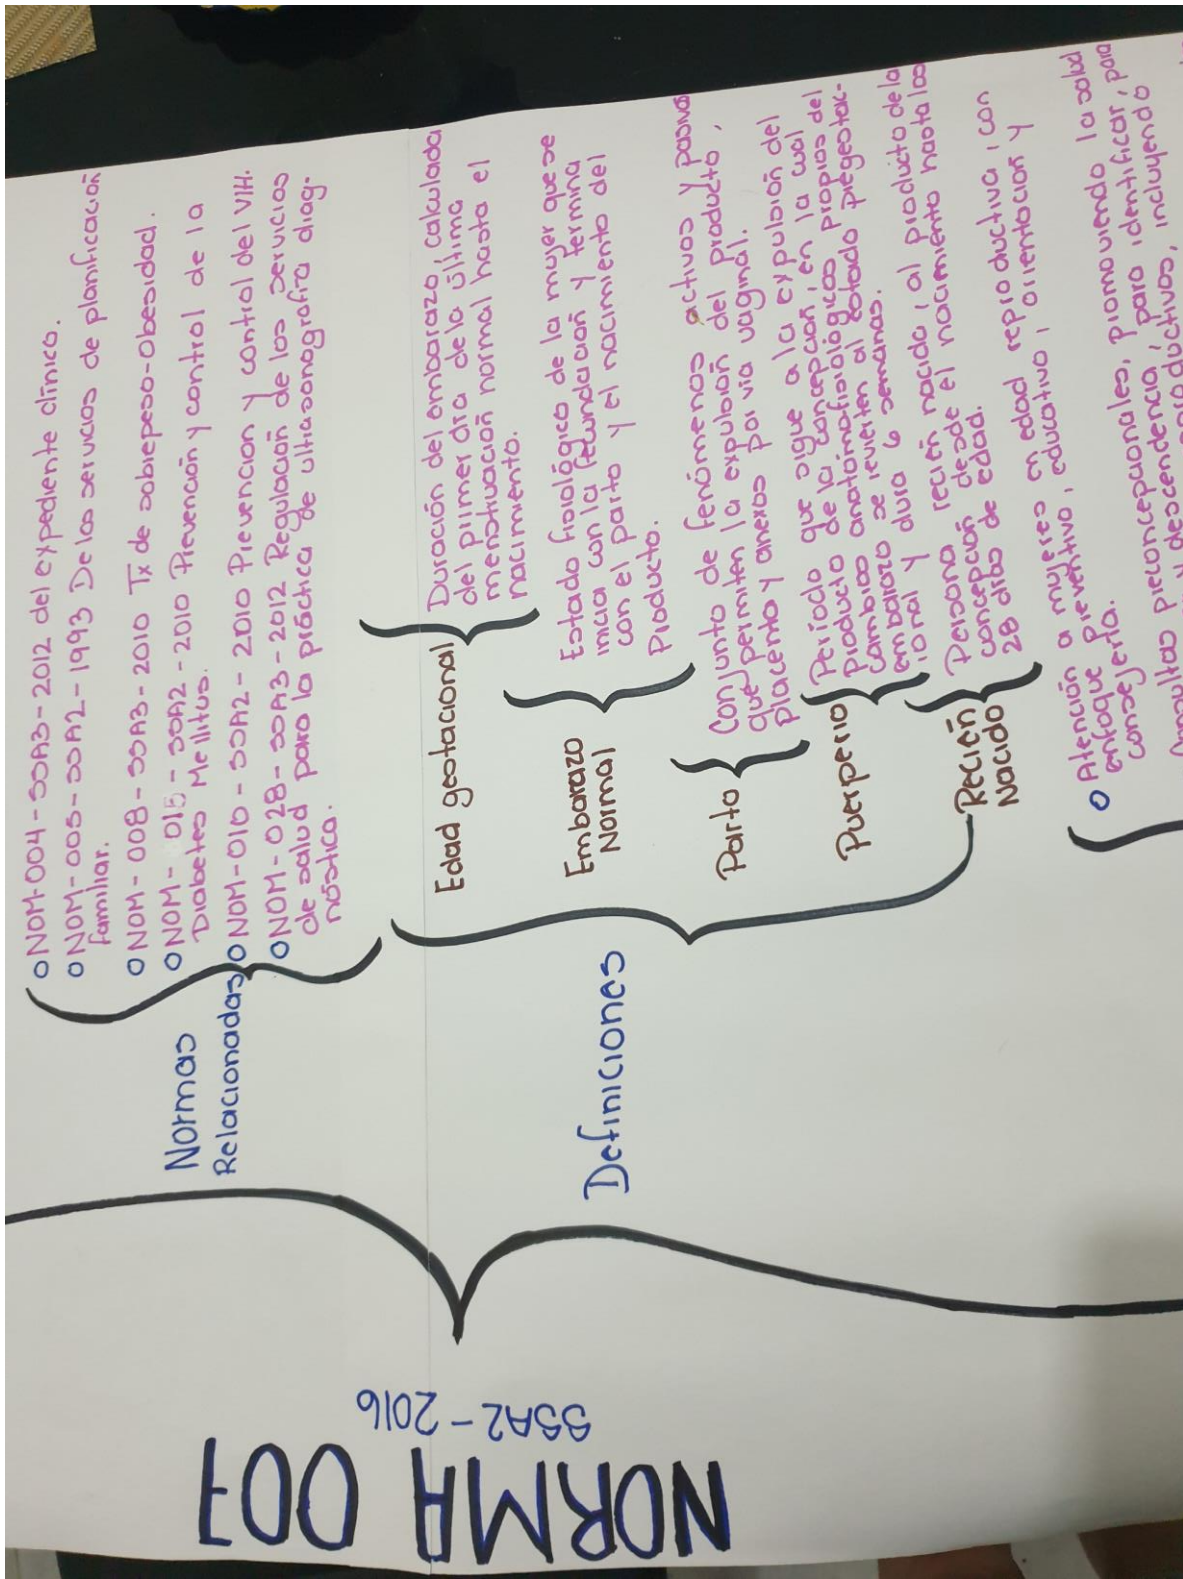 NORMA 007
SSA2-2016
Normas
Relacionadas
NOM-004-SSA3-2012 del expediente clínico.
NOM-005-SSA2-1993 De los servicios de planificación
familiar.
NOM-008-SSA3-2010 Tx de sobrepeso-Obesidad.
NOM-015-SSA2-2010 Prevención y control de la
Diabetes Mellitus.
NOM-010-SSA2-2010 Prevencion y control del VIH.
NOM-028-SSA3-2012 Regulación de los servicios
de salud para la práctica de ultrasonografía diag-
nóstica.
Definiciones
Edad gestacional
Duración del embarazo, calculada
del primer día de la última
menstruación normal hasta el
nacimiento.
Embarazo
Normal
Estado fisiológico de la mujer que se
inicia con la fecundación y termina
con el parto y el nacimiento del
Producto.
Parto
Conjunto de fenómenos activos y pasivos
que permiten la expulsión del producto,
placenta y anexos por vía vaginal.
Puerperio
Período que sigue a la expulsión del
producto de la concepción, en la cual
cambios anatomofisiológicos propios del
embarazo se revierten al estado pregestac-
ional y dura 6 semanas.
Recién
Nacido
Persona recién nacida, al producto de la
concepción desde el nacimiento hasta los
28 días de edad.
Atención a mujeres en edad reproductiva, con
enfoque Preventivo, educativo, orientación y
consejería.
preconcepcionales, promoviendo la salud
y descendencia, para identificar, para
preconceptivos, incluyendo